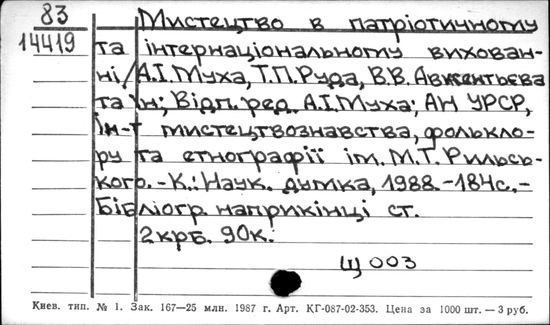 83
14419
Мистецтво в патріотичному
та інтернаціональному вихован-
ні/А.І.Муха, Т.П.Руда, В.В.Авксентьєва
та ін; Відп. ред. А.І.Муха; АН УРСР,
Ін-т мистецтвознавства, фолькло-
ру та етнографії ім. М.Т.Рильсь-
кого. - К.: Наук. думка, 1988. - 184с. -
Бібліогр. наприкінці ст.
2крб. 90к.
Щ 003
Киев. тип. № 1. Зак. 167—25 млн. 1987 г. Арт. КГ-087-02-353. Цена за 1000 шт. — 3 руб.